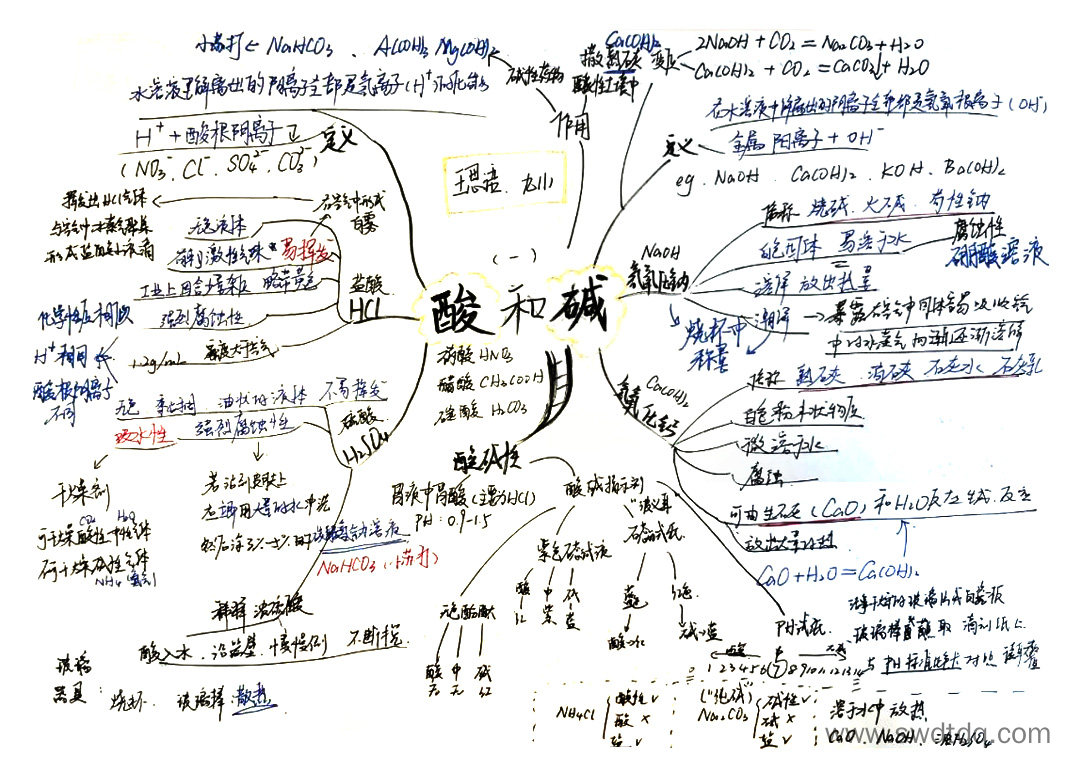 酸和碱
(一)
王思语 九(1)
小苏打← NaHCO₃、Al(OH)₃ Mg(OH)₂
碱性药物
作用
Ca(OH)₂
撒熟石灰
酸性土壤中
变质
2NaOH + CO₂ = Na₂CO₃ + H₂O
Ca(OH)₂ + CO₂ = CaCO₃↓ + H₂O
定义
在水溶液中解离出的阴离子全部都是氢氧根离子(OH⁻)
金属阳离子 + OH⁻
eg. NaOH、Ca(OH)₂、KOH、Ba(OH)₂
水溶液里解离出的阳离子全部是氢离子(H⁺)的化合物
定义
H⁺ + 酸根阴离子
(NO₃⁻、Cl⁻、SO₄²⁻、CO₃²⁻)
盐酸
HCl
挥发出HCl气体
与空气中水蒸气聚集
形成盐酸小液滴
在空气中形成
白雾
无色液体
有刺激性气味
易挥发
工业上因含杂质 略带黄色
强烈腐蚀性
1.2g/mL 密度大于空气
化学性质相似
H⁺相同
酸根离子
不同
硫酸
H₂SO₄
无色 黏稠 油状的液体 不易挥发
吸水性
强烈腐蚀性
干燥剂
CO₂ H₂
可干燥酸性中性气体
不可干燥碱性气体
NH₃ (氨气)
若沾到皮肤上
立即用大量的水冲洗
然后涂3%-5%的碳酸氢钠溶液
NaHCO₃ (小苏打)
稀释浓硫酸
酸入水、沿器壁、慢慢倒 不断搅
玻璃
器具:
烧杯、玻璃棒 散热
硝酸 HNO₃
醋酸 CH₃COOH
碳酸 H₂CO₃
NaOH
氢氧化钠
俗称 烧碱、火碱、苛性钠
白色固体 易溶于水
腐蚀性
硼酸溶液
溶解 放出热量
潮解
→暴露在空气中固体易吸收空
中的水蒸气而逐渐溶解
烧杯中
称量
Ca(OH)₂
氢氧化钙
俗称 熟石灰、消石灰 石灰水、石灰乳
白色粉末状物质
微溶于水
腐蚀
可由生石灰(CaO)和H₂O反应生成,反应
放出大量的热
CaO + H₂O = Ca(OH)₂
酸碱性
胃液中胃酸(主要为HCl)
PH: 0.9-1.5
酸碱指示剂
紫色石蕊试液
酸 中 碱
红 紫 蓝
无色酚酞
酸 中 碱
无 无 红
石蕊试纸
蓝色
酸→红
红色
碱→蓝
PH试纸
酸 中 碱
0 1 2 3 4 5 6 7 8 9 10 11 12 13 14
NH₄Cl
酸性 √
酸 ×
盐 √
("纯碱")
Na₂CO₃
碱性 √
碱 ×
盐 √
溶于水中 放热
CaO、NaOH、浓H₂SO₄
www.swdtdq.com